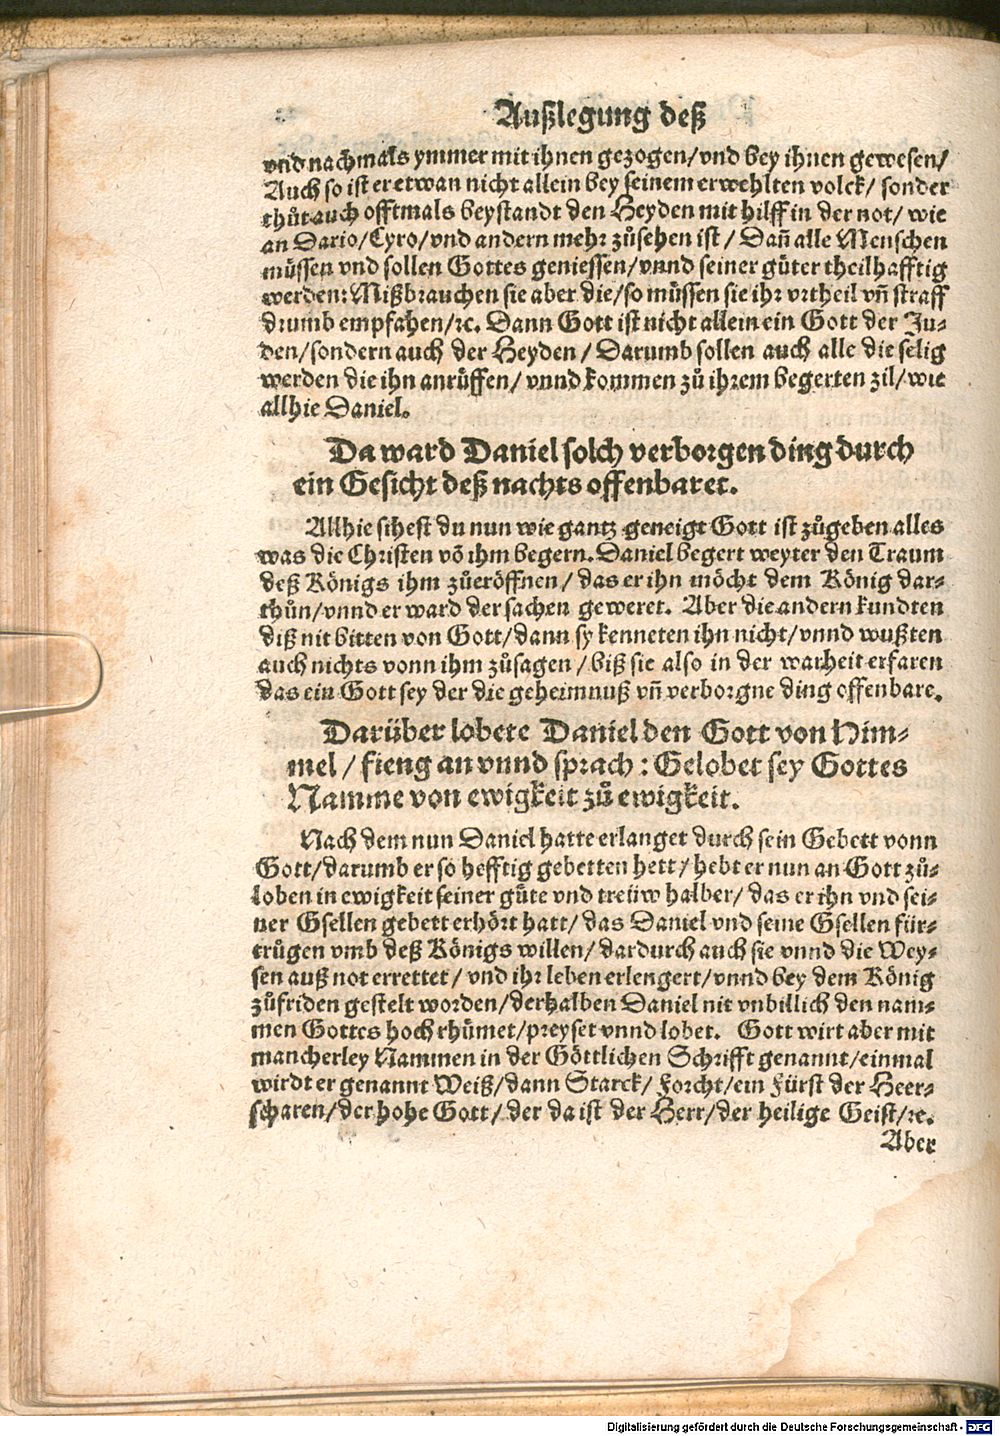 Außlegung deß
vnd nachmals ymmer mit ihnen gezogen/vnd bey ihnen gewesen/
Auch so ist er etwan nicht allein bey seinem erwehlten volck/ sonder
thůt auch offtmals beystandt den Heyden mit hilff in der not/ wie
an Dario/Cyro/vnd andern mehr zůsehen ist/ Dañ alle Menschen
müssen vnd sollen Gottes geniessen/vnnd seiner güter theilhafftig
werden: Mißbrauchen sie aber die/so müssen sie ihr vrtheil vñ straff
drumb empfahen/ꝛc. Dann Gott ist nicht allein ein Gott der Ju-
den/sondern auch der Heyden/ Darumb sollen auch alle die selig
werden die ihn anrüffen/ vnnd kommen zů ihrem begerten zil/ wie
allhie Daniel.
Da ward Daniel solch verborgen ding durch
ein Gesicht deß nachts offenbaret.
Allhie sihest du nun wie gantz geneigt Gott ist zůgeben alles
was die Christen võ ihm begern. Daniel begert weyter den Traum
deß Königs ihm zůeröffnen/ das er ihn möcht dem König dar-
thůn/vnnd er ward der sachen geweret. Aber die andern kundten
diß nit bitten von Gott/dann sy kenneten ihn nicht/vnnd wußten
auch nichts vonn ihm zůsagen/biß sie also in der warheit erfaren
das ein Gott sey der die geheimnuß vñ verborgne ding offenbare.
Darüber lobete Daniel den Gott von Him-
mel/ fieng an vnnd sprach: Gelobet sey Gottes
Namme von ewigkeit zů ewigkeit.
Nach dem nun Daniel hatte erlanget durch sein Gebett vonn
Gott/darumb er so hefftig gebetten hett/ hebt er nun an Gott zů-
loben in ewigkeit seiner güte vnd treüw halber/ das er ihn vnd sei-
ner Gsellen gebett erhört hatt/ das Daniel vnd seine Gsellen für-
trügen vmb deß Königs willen/ dardurch auch sie vnnd die Wey-
sen auß not errettet/ vnd ihr leben erlengert/vnnd bey dem König
zůfriden gestelt worden/derhalben Daniel nit vnbillich den nam-
men Gottes hoch rhümet/preyset vnnd lobet. Gott wirt aber mit
mancherley Nammen in der Göttlichen Schrifft genannt/einmal
wirdt er genannt Weiß/dann Starck/ Forcht/ein Fürst der Heer-
scharen/der hohe Gott/ der da ist der Herr/der heilige Geist/ꝛc.
Aber
Digitalisierung gefördert durch die Deutsche Forschungsgemeinschaft - DFG